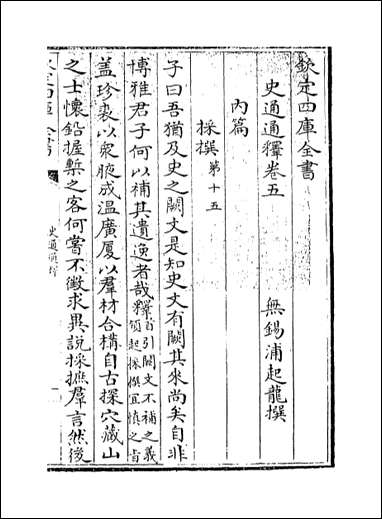 欽定四庫全書
史通通釋卷五
無錫浦起龍撰
內篇
採撰第十五
子曰吾猶及史之闕文是知史文有闕其來尚矣自非
博雅君子何以補其遺逸者哉釋首引闕文不補之義
領起採撰宜慎之旨
蓋珍裘以衆腋成溫廣厦以羣材合構自古探穴藏山
之士懷鉛握槧之客何嘗不徵求異說採摭羣言然後
史通通釋